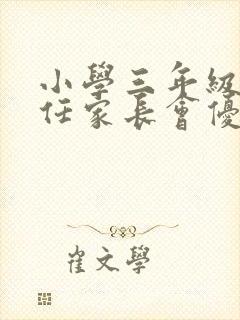 小學三年級
任家長會優
崔文學